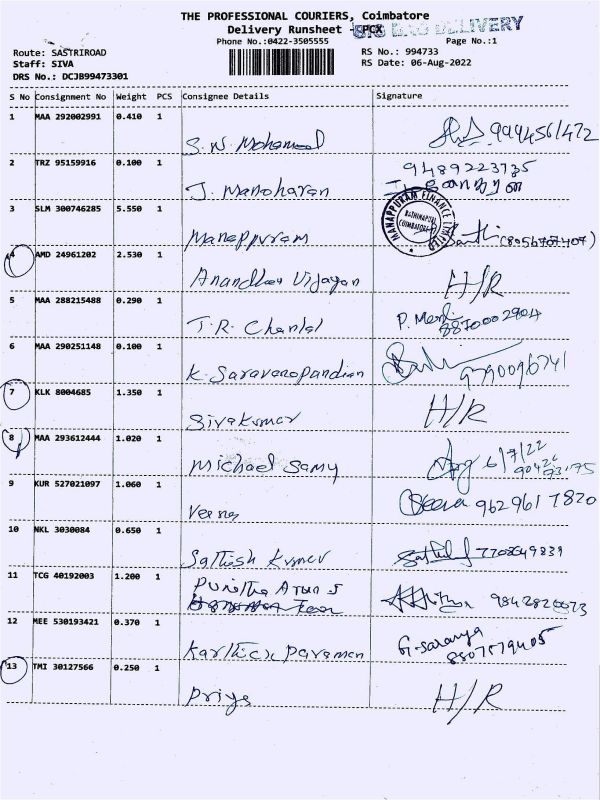 THE PROFESSIONAL COURIERS, Coimbatore
Delivery Runsheet - PCX
DELIVERY
Phone No.:0422-3505555
Page No.:1
Route: SASTRIROAD
RS No.: 994733
Staff: SIVA
RS Date: 06-Aug-2022
DRS No.: DCJB99473301
S No Consignment No Weight PCS Consignee Details Signature
1 MAA 292002991 0.410 1 S. N. Mohamed
2 TRZ 95159916 0.100 1 J. Manoharan 9489223735
3 SLM 300746285 5.550 1 Manappuram
MANAPPURAM FINANCE LIMITED
COIMBATORE
4 AMD 24961202 2.530 1 Vijayan H/R
5 MAA 288215488 0.290 1 J.R. 8870002904
6 MAA 290251148 0.100 1 K. Saravanapandian
7 KLK 8004685 1.350 1 Sivakumar H/R
8 MAA 293612444 1.020 1 Michael Samy 6/7/22
9 KUR 527021097 1.060 1 Veena 9629617820
10 NKL 3030084 0.650 1 Sathish Kumar 7708649839
11 TCG 40192003 1.200 1 Punitha Arun J
12 MEE 530193421 0.370 1 G. Saranya
13 TMI 30127566 0.250 1 Priya H/R